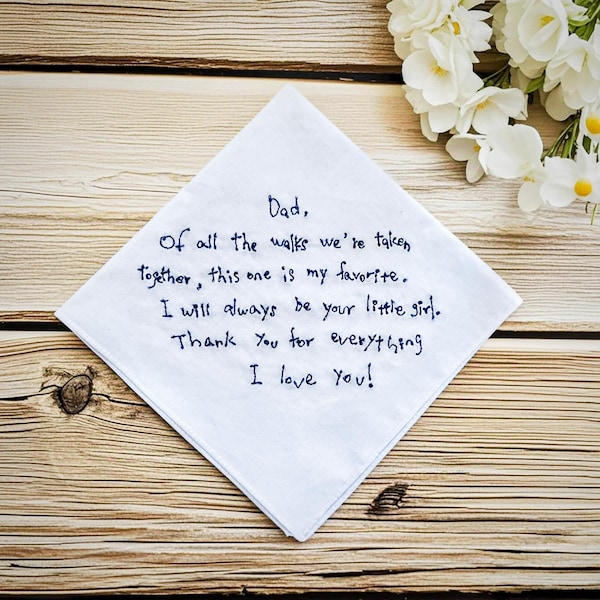 Dad,
Of all the walks we're taken
together, this one is my favorite.
I will always be your little girl.
Thank You for everything
I love You!